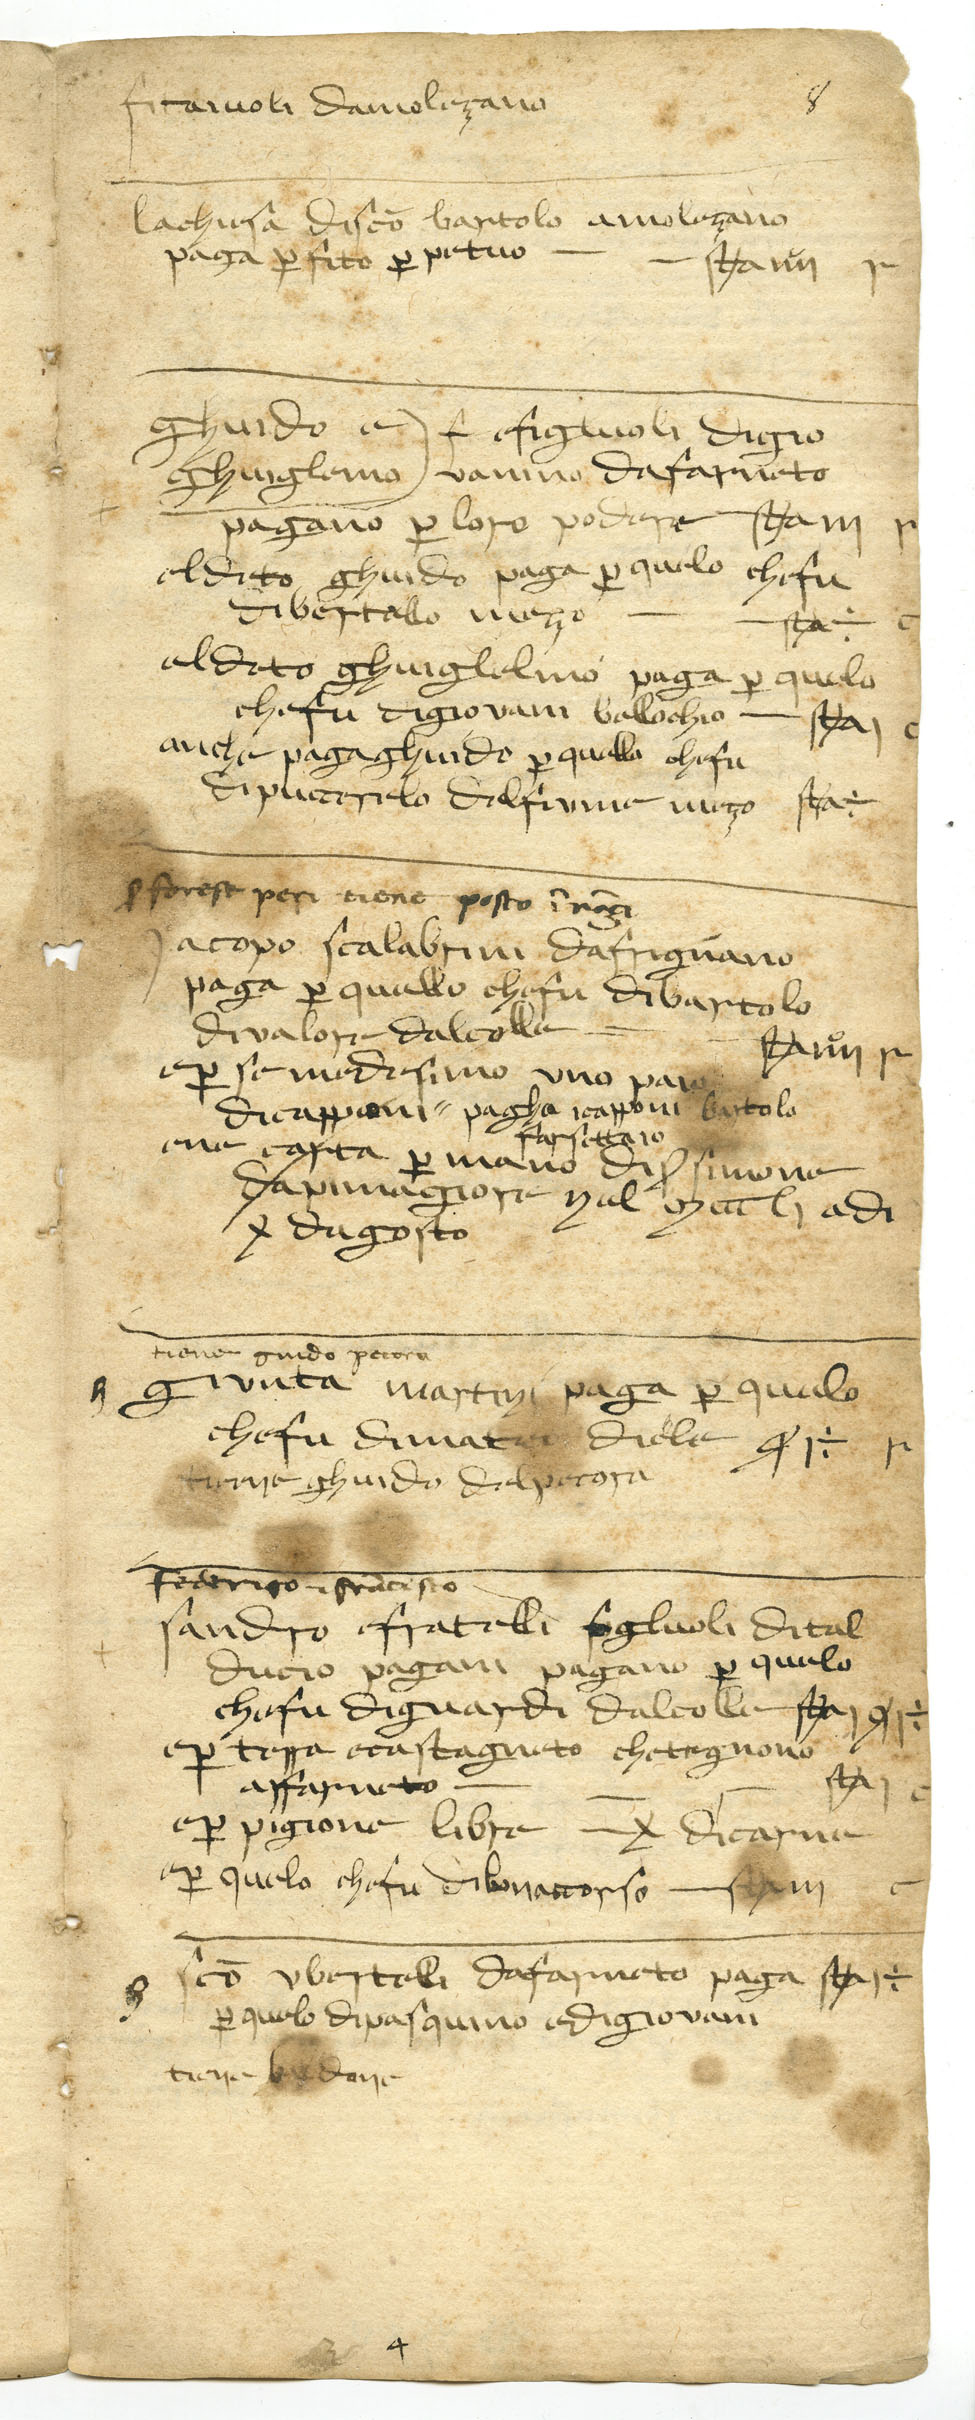 fitaiuoli damolezano 8
lachiesa disco bartolo amolezano
paga p fito p petuo — — staia viii
ghuido e f efigluoli digio
ghuiglemo vanino dafarneto
pagano p loro podere staia iii
eldeto ghuido paga p quelo chefu
dibertallo mezo — — staia ÷
eldeto ghuiglelmo paga p quelo
chefu digiovani bellochio — staia i
anche pagaghuido p quello chefu
dipucerelo delfiume mezo staia ÷
forese peri tiene posto i
Jacopo scalabrini dafrignano
paga p quello chefu dibartolo
divalore dalcolle —
ep se medesimo uno paio
dicapponi pagha icapponi bartolo
farsettaio
ene carta p mano di s simone
dapimagiore nel adi
x dagosto
tiene guido pecora
giunta martini paga p quelo
chefu dimatei diele i÷
tiene ghuido delpecora
Federigo e francisco
sandro efratelli figluoli dital
ducio pagani pagano p quelo
chefu diguardi dalcolle staia i
ep terra ecastagneto chetegnono
affarneto — — staia i
ep pigione libre — x dicarne
ep quelo chefu dibonaccorso — staia iii
sco ubertelli dafarneto paga staia i÷
p quelo dipasquino edigiovani
tiene
4